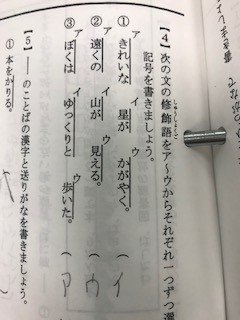 【4】次の文の修飾語をア～ウからそれぞれ一つずつ選
しゅうしょくご
記号を書きましょう。
① きれいな 星が かがやく。 （イ
ア イ ウ
② 遠くの 山が 見える。 （ウ
ア イ ウ
③ ぼくは ゆっくりと 歩いた。 （ア
ア イ ウ
【5】――のことばの漢字と送りがなを書きましょう。
① 本をかりる。